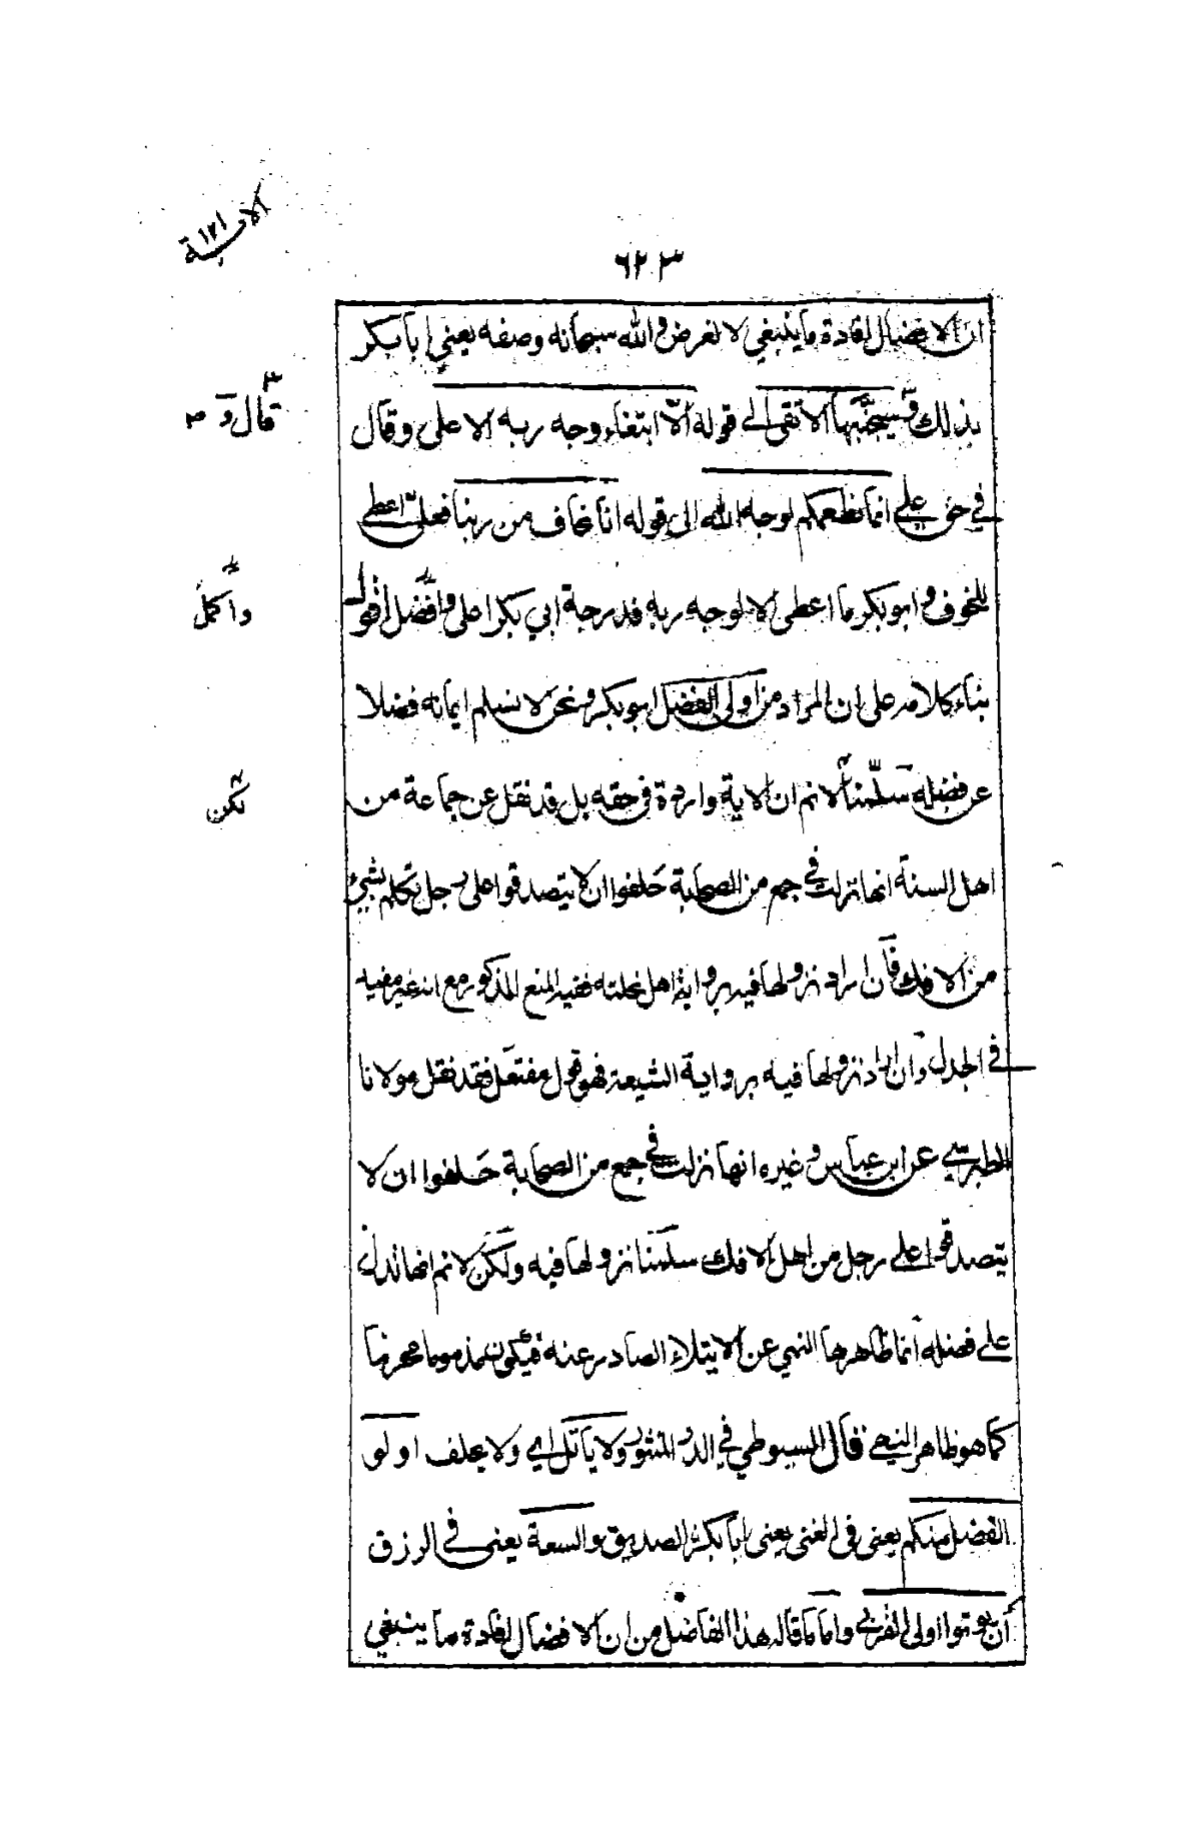 الاية ١٢١
٦٢٣
ان الافضال افادة ما ينبغي لا لغرض والله سبحانه وصفه يعني ابا بكر
بذلك وسيجنبها الاتقى الى قوله الا ابتغاء وجه ربه الاعلى وقال
قال و ٣
في حق علي انما نطعمكم لوجه الله الى قوله انا نخاف من ربنا فعلي اعطى
للخوف وابو بكر ما اعطى الا لوجه ربه فدرجة ابي بكر اعلى وافضل اقول
واكمل
بناء كلامه على ان المراد من اولي الفضل ابو بكر ونحن لا نسلم ايمانه فضلا
عن فضله سلمنا لا نم ان الاية واردة في حقه بل قد نقل عن جماعة من
نكن
اهل السنة انها نزلت في جمع من الصحابة حلفوا ان لا يتصدقوا على رجل تكلم بشيء
من الافك فان اراد نزولها فيه برواية اهل نحلته ففيه المنع المذكور مع انه غير مفيد
في الجدل وان اراد نزولها فيه برواية الشيعة فهو قول مفتعل فقد نقل مولانا
الطبرسي عن ابن عباس وغيره انها نزلت في جمع من الصحابة حلفوا ان لا
يتصدقوا على رجل من اهل الافك سلمنا نزولها فيه ولكن لا نم انها تدل
على فضله انما ظاهرها النهي عن الايتلاء الصادر عنه فيكون مذموما محرما
كما هو ظاهر النهي قال السيوطي في الدر المنثور ولا ياتل اي ولا يحلف اولو
الفضل منكم يعني في الغنى يعني ابا بكر الصديق والسعة يعني في الرزق
ان يوتوا اولي القربى واما ما قاله هذا الفاضل من ان الافضال افادة ما ينبغي